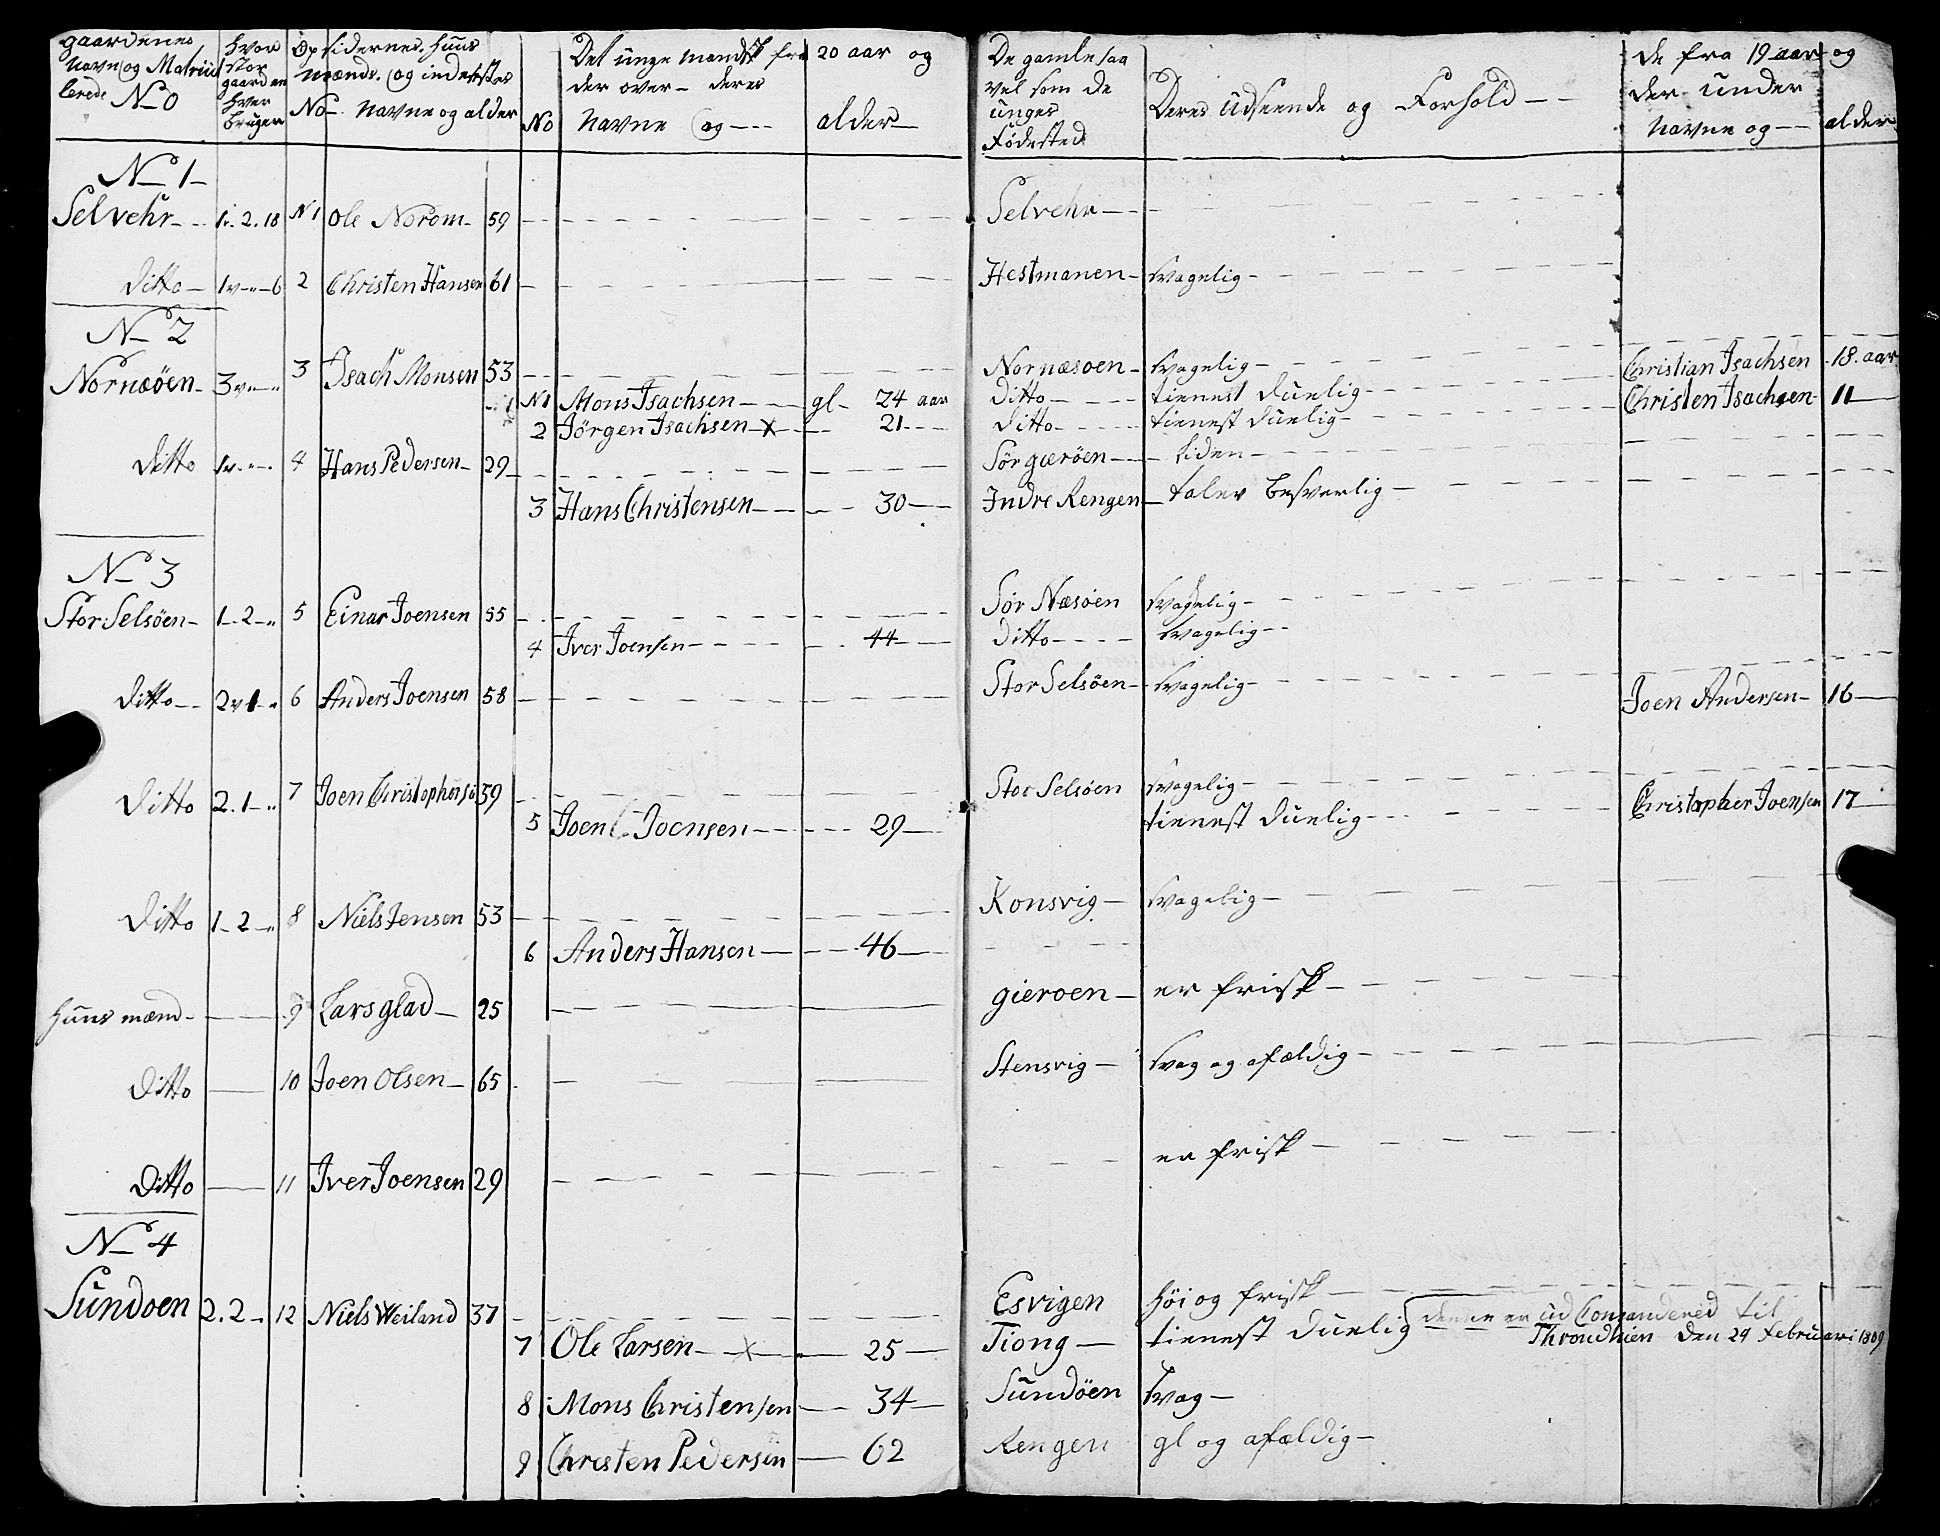 gaardenes Navn og Matricu lerede No | hvor stor gaard en hver bruger | Opsidernes, huus mænds. og inderstes No Navne og alder | No | Det unge mandsk fra 20 aar og der over deres Navne og alder | De gamle saa vel som de unges Fødested | Deres Udseende og Forhold | de fra 19 aar og der under Navne og alder
No 1
Selvehr 1v. 2. 18 N1 Ole Norom 59 Selvehr
Ditto 1v " 6 2 Christen Hansen 61 Hestmanen svagelig
No 2
Nornæöen 3v " " 3 Isach Monsen 53 Nornæsöen svagelig Christian Isachsen 18. aar
N1 Mons Isachsen gl 24 aar Ditto tienest duelig Christen Isachsen 11
2 Jörgen Isachsen x 21 Ditto tienest duelig
Ditto 1v " " 4 Hans Pedersen 29 Sör gieröen liden
3 Hans Christensen 30 Indre Rengen taler besverlig
No 3
Stor Selsöen 1 2 " 5 Einar Joensen 55 Sör Næsöen svagelig
4 Iver Joensen 44 Ditto svagelig
Ditto 2v 1 " 6 Anders Joensen 58 Stor Selsöen svagelig Joen Andersen 16
Ditto 2. 1 " 7 Joen Christophers 59 Stor Selsöen svagelig Christopher Joensen 17
5 Joen Joensen 29 tienest duelig
Ditto 1 2 " 8 Niels Jensen 53 Konsvig svagelig
6 Anders Hansen 46
huus mænd 9 Lars glad 25 gieroen er frisk
Ditto 10 Joen Olsen 65 Stensvig svag og afældig
Ditto 11 Iver Joensen 29 er frisk
No 4
Sundoen 2. 2 12 Niels Weiland 37 Esvigen höi og frisk
7 Ole Larsen x 25 Tiong tienest duelig denne er ud Comandered til Throndhien den 24 Februari 1809
8 Mons Christensen 34 Sundöen svag
9 Christen Pedersen 62 Rengen gl og afældig